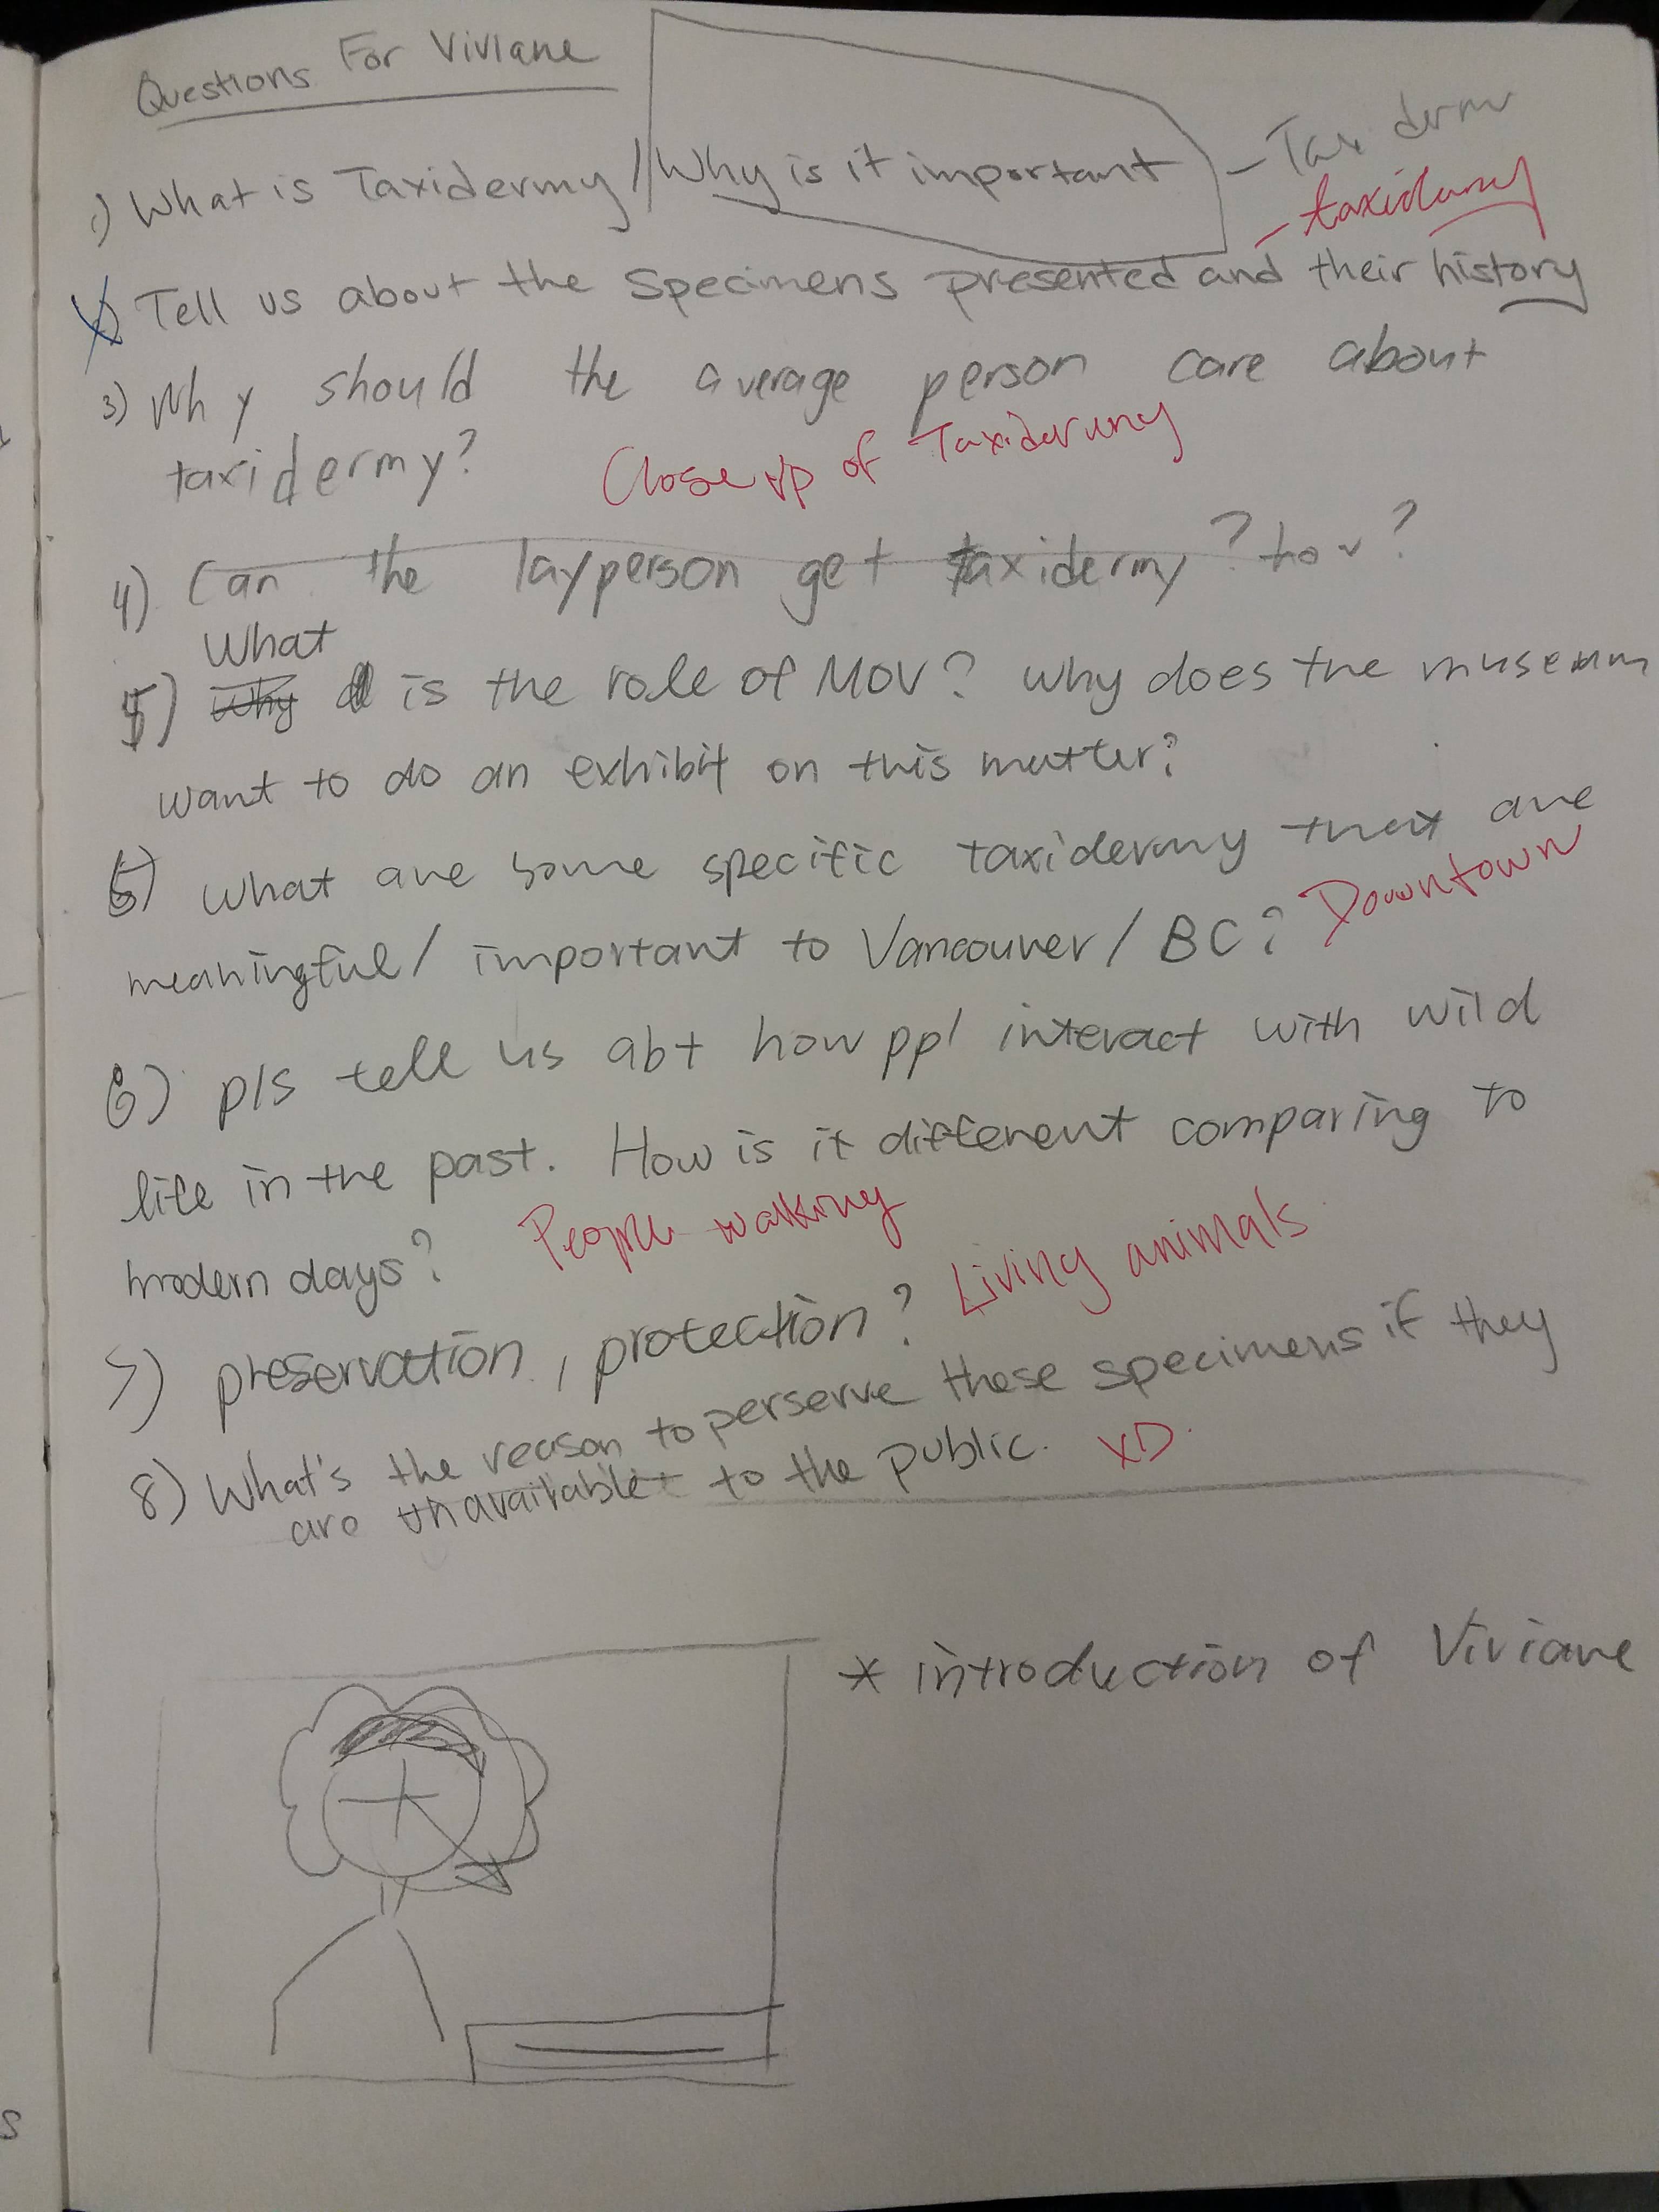 Questions For Viviane
1) What is Taxidermy / Why is it important - Tax derm
- taxidermy
Tell us about the Specimens presented and their history
3) Why should the average person care about
taxidermy? Close up of Taxidermy
4) Can the layperson get taxidermy? how?
What
5) Why is the role of MOV? Why does the museum
want to do an exhibit on this matter?
5) What are some specific taxidermy that are
meaningful/ important to Vancouver/ BC? Downtown
6) pls tell us abt how ppl interact with wild
life in the past. How is it different comparing to
modern days? People walking
7) preservation, protection? Living animals
8) What's the reason to perserve these specimens if they
are unavailable to the public. XD.
* introduction of Viviane
s